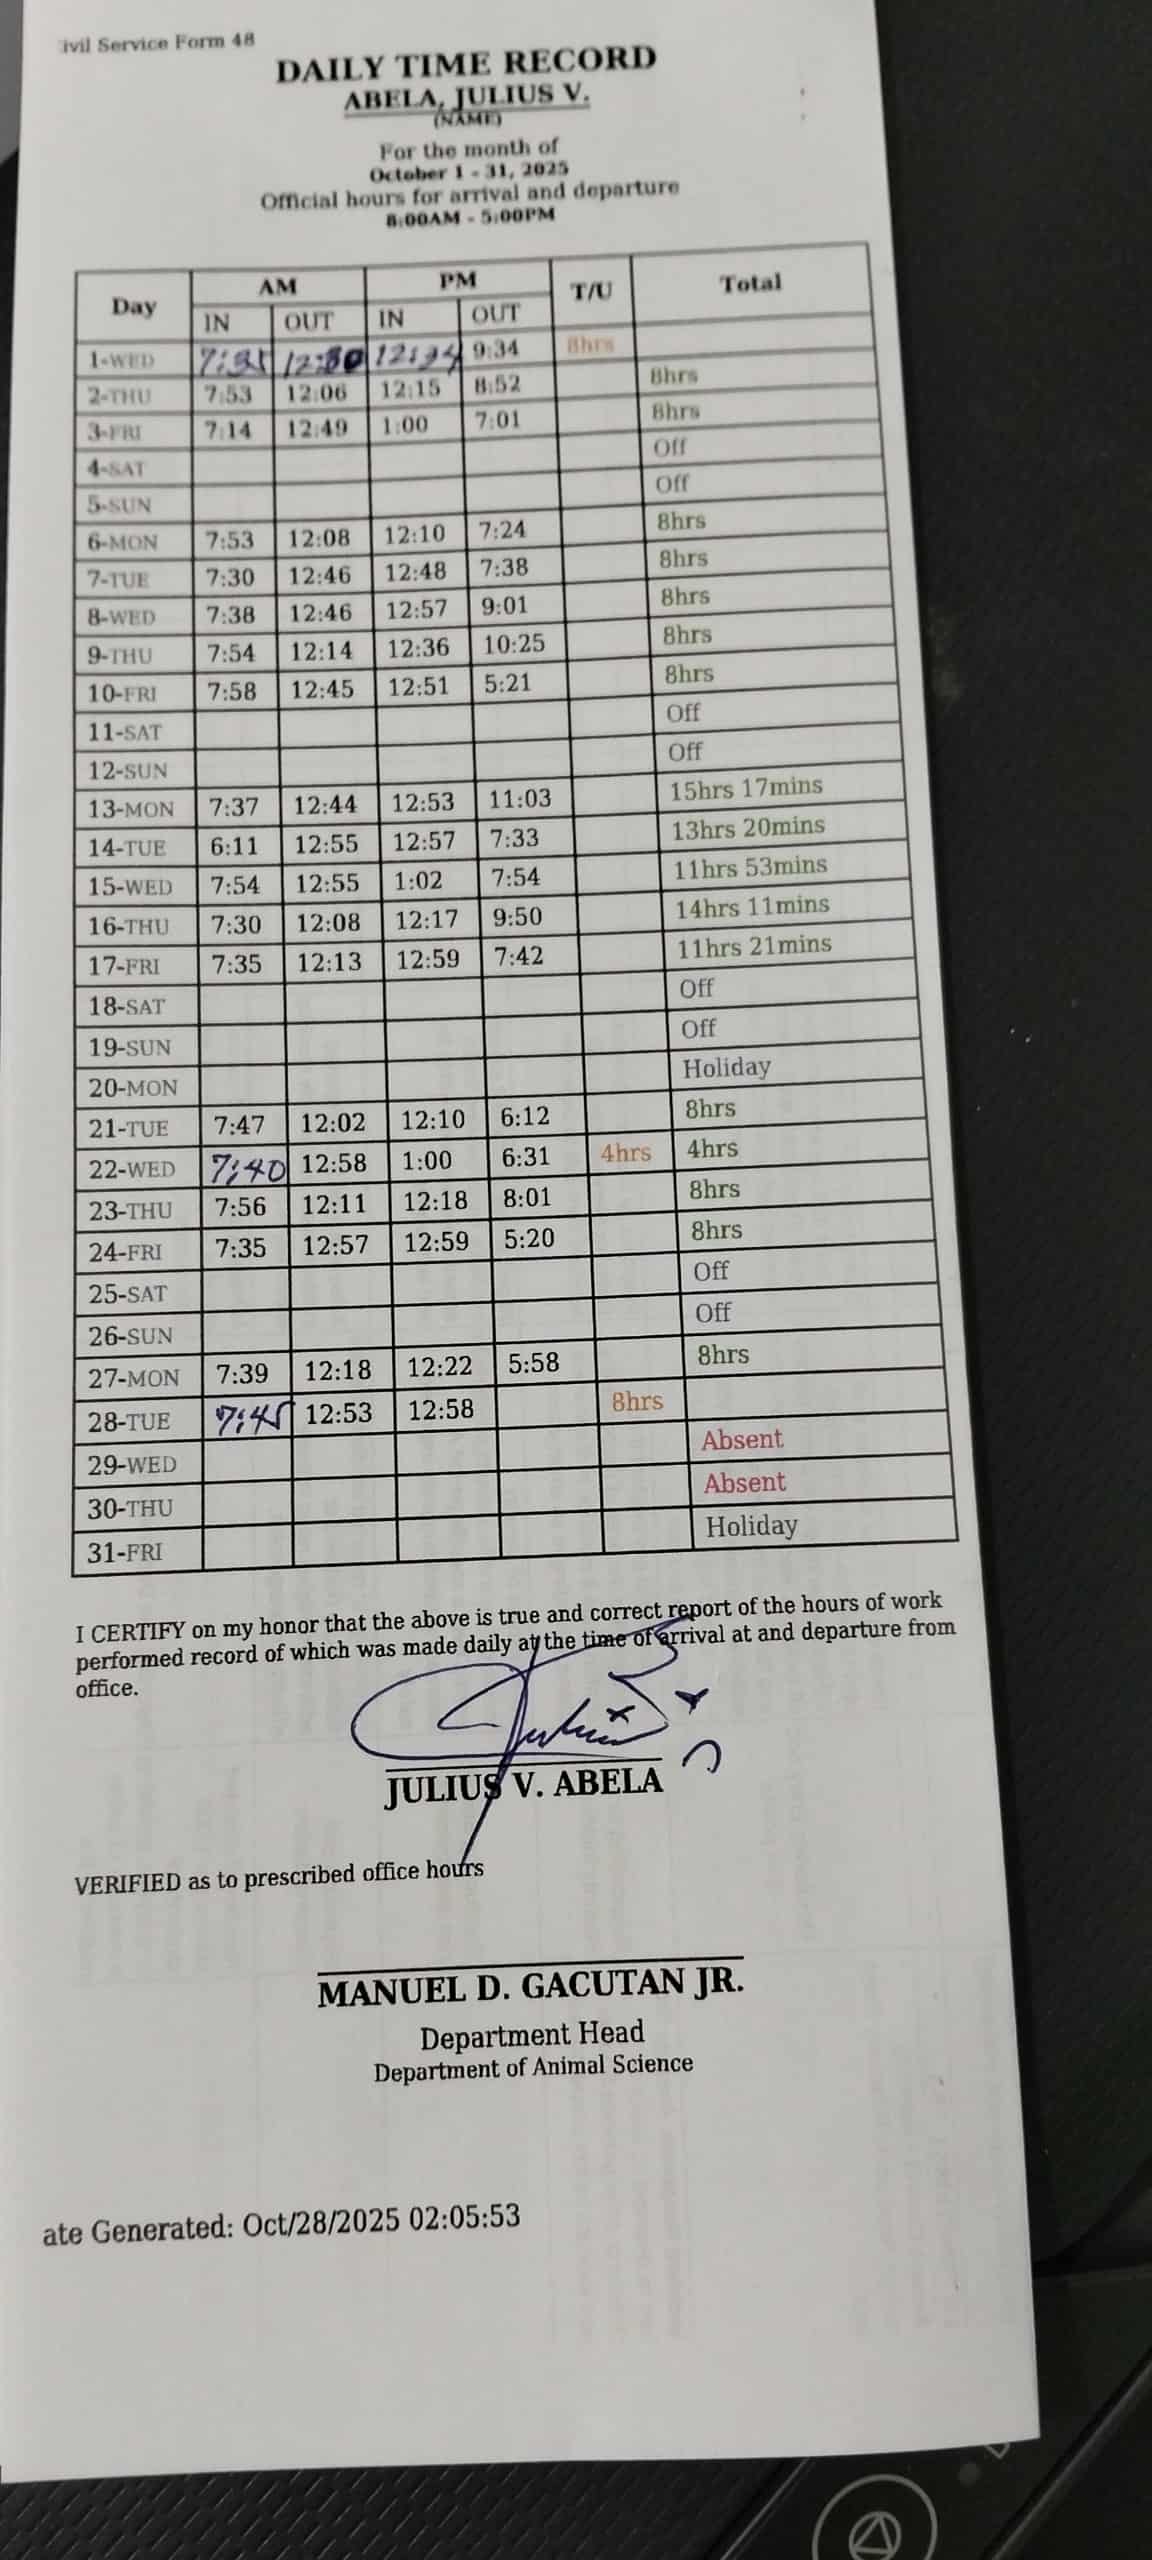 ivil Service Form 48
DAILY TIME RECORD
ABELA, JULIUS V.
(NAME)
For the month of
October 1 - 31, 2025
Official hours for arrival and departure
8:00AM - 5:00PM
Day AM PM T/U Total
IN OUT IN OUT
1-WED 12:34 9:34 8hrs
2-THU 7:53 12:06 12:15 8:52 8hrs
3-FRI 7:14 12:49 1:00 7:01 8hrs
4-SAT Off
5-SUN Off
6-MON 7:53 12:08 12:10 7:24 8hrs
7-TUE 7:30 12:46 12:48 7:38 8hrs
8-WED 7:38 12:46 12:57 9:01 8hrs
9-THU 7:54 12:14 12:36 10:25 8hrs
10-FRI 7:58 12:45 12:51 5:21 8hrs
11-SAT Off
12-SUN Off
13-MON 7:37 12:44 12:53 11:03 15hrs 17mins
14-TUE 6:11 12:55 12:57 7:33 13hrs 20mins
15-WED 7:54 12:55 1:02 7:54 11hrs 53mins
16-THU 7:30 12:08 12:17 9:50 14hrs 11mins
17-FRI 7:35 12:13 12:59 7:42 11hrs 21mins
18-SAT Off
19-SUN Off
20-MON Holiday
21-TUE 7:47 12:02 12:10 6:12 8hrs
22-WED 7:40 12:58 1:00 6:31 4hrs 4hrs
23-THU 7:56 12:11 12:18 8:01 8hrs
24-FRI 7:35 12:57 12:59 5:20 8hrs
25-SAT Off
26-SUN Off
27-MON 7:39 12:18 12:22 5:58 8hrs
28-TUE 7:45 12:53 12:58 8hrs
29-WED Absent
30-THU Absent
31-FRI Holiday
I CERTIFY on my honor that the above is true and correct report of the hours of work
performed record of which was made daily at the time of arrival at and departure from
office.
JULIUS V. ABELA
VERIFIED as to prescribed office hours
MANUEL D. GACUTAN JR.
Department Head
Department of Animal Science
ate Generated: Oct/28/2025 02:05:53